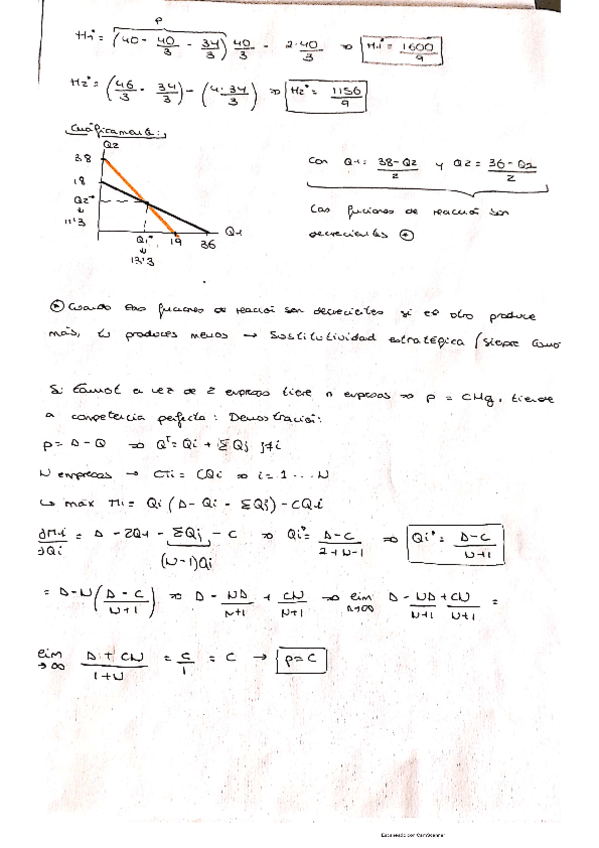 P
Π1* = (40 - 40/3 - 34/3) 40/3 - 2·40/3 ⇒ Π1* = 1600/9
Π2* = (46/3 · 34/3) - (4·34/3) ⇒ Π2* = 1156/9
Gráficamente:
Q2
38
18
Q2*
11'3
Q1*
19
36
Q1
13'3
Con Q1 = 38-Q2/2 y Q2 = 36-Q1/2
Las funciones de reacción son
decrecientes *
* Cuando las funciones de reacción son decrecientes si el otro produce
más, tu produces menos → Sustitutividad estratégica (siempre
Si Cournot a vez de 2 empresas tiene n empresas ⇒ p = CMg, tiende
a competencia perfecta: Demostración:
p = A - Q ⇒ Q^T = Qi + ΣQj j≠i
N empresas → CTi = CQi ⇒ i = 1 ... N
↳ máx Πi = Qi (A - Qi - ΣQj) - CQi
∂Πi/∂Qi = A - 2Qi - ΣQj - C ⇒ Qi* = A-C/2+N-1 ⇒ Qi* = A-C/N+1
(N-1)Qi
= A - N(A-C/N+1) ⇒ A - NA/N+1 + CN/N+1 ⇒ lim n→∞ A - NA/N+1 + CN/N+1 =
lim →∞ A + CN/1+N = C/1 = C → p = C
Escaneado con CamScanner